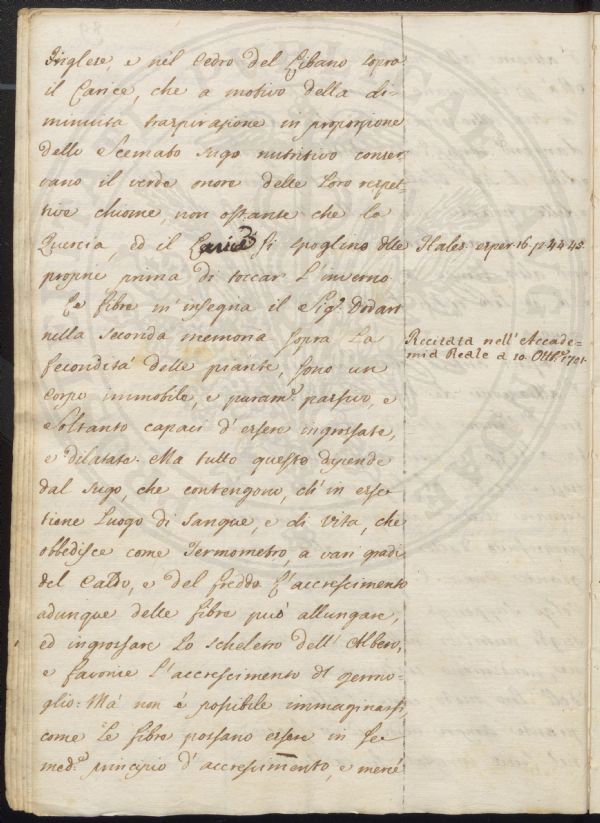 Inglese, e nel Cedro del Libano sopra
il Carice, che a motivo della di=
minuita traspirazione in proporzione
dello Scemato sugo nutritivo conser
vano il verde onore delle loro respet
tive chiome, non ostante che la
Quercia, ed il Carice si spoglino delle
proprie prima di toccar l'inverno
Le fibre m'insegna il Sig.r Dodart
nella seconda memoria sopra la
fecondità delle piante, sono un
Corpo immobile, e puram.e passivo, e
Soltanto capaci d'essere ingrossate,
e dilatate. Ma tutto questo dipende
dal sugo, che contengono, ch'in esse
tiene luogo di sangue, e di vita, che
obbedisce come Termometro, a vari gradi
del Caldo, e del freddo. L'accrescimento
adunque delle fibre può allungare,
ed ingrossare lo scheletro dell'Albero,
e favorire l'accrescimento del germo=
glio: Ma non è possibile immaginarsi,
come le fibre possano essere in se
med.e principio d'accrescimento, e mercè
Hales esper. 16. p 44 45
Recitata nell'Accade=
mia Reale a 10. Ott.e 1701.